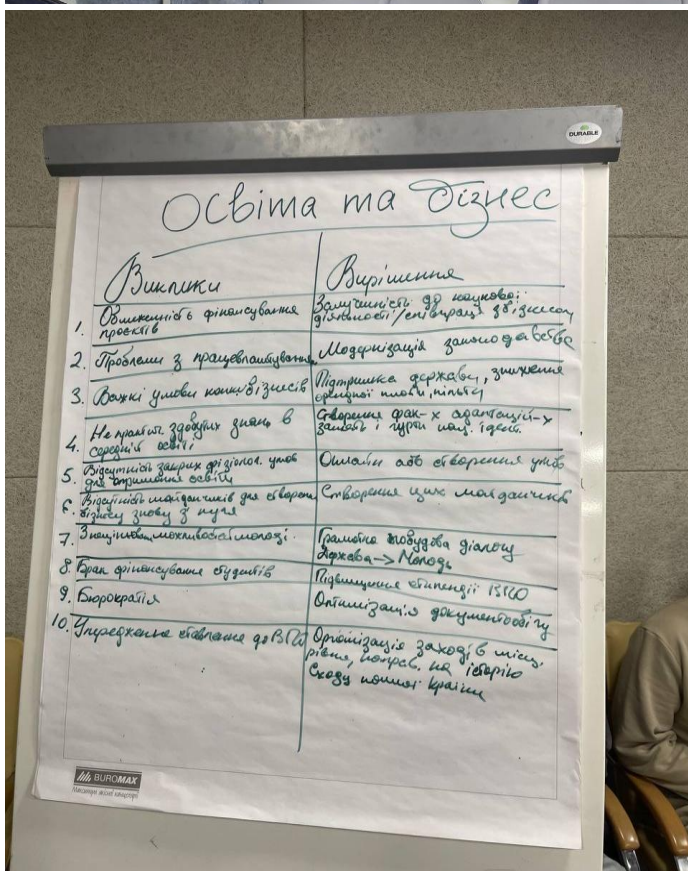 DURABLE
Освіта та бізнес
Виклики
Вирішення
1. Обмеженість фінансування
проєктів
Залученність до наукової
діяльності/співпраці з бізнесом
2. Проблеми з працевлаштуванням
Модернізація законодавства
3. Важкі умови конк. бізнесів
Підтримка держави, зниження
орендної плати, пільги
4. Не практич. здобутих знань в
середній освіті
Створення фак-х адаптацій-х
занять і гурти нац. ідент.
5. Відсутність закрих фізіолог. умов
для отримання освіти
Онлайн або створення умов
6. Відсутність майданчиків для створення
бізнесу знову з нуля
Створення цих майданчиків
7. Знецінюван. можливостей молоді.
Грамотна побудова діалогу
Держава -> Молодь
8. Брак фінансування студентів
Підвищення стипендії ВПО
9. Бюрократія
Оптимізація документообігу
10. Упереджене ставлення до ВПО
Організація заходів місц.
рівня, направ. на історію
Сходу нашої країни
BUROMAX